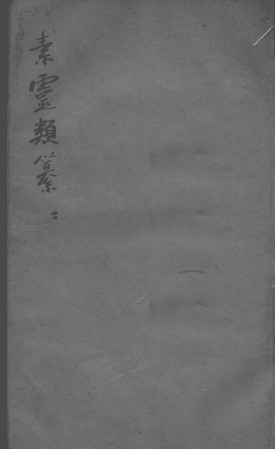 素靈類纂 二